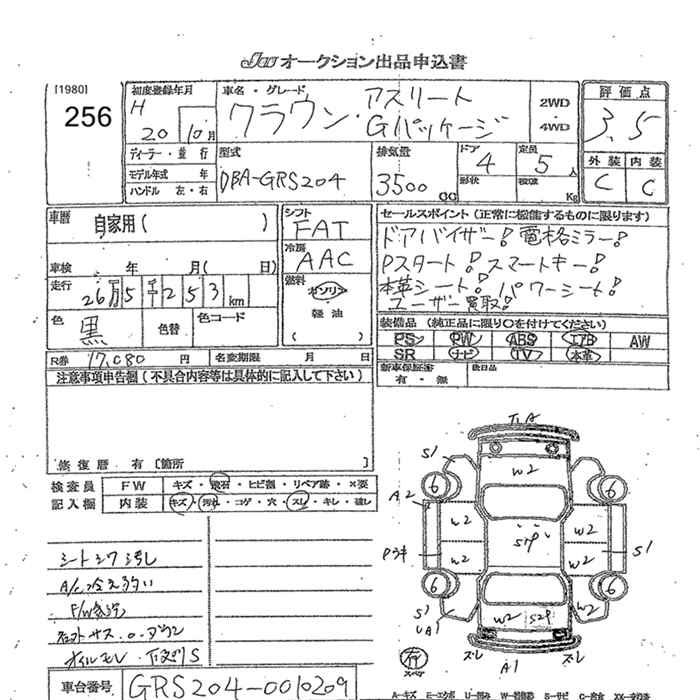 JU オークション出品申込書
[1980]
256
初度登録年月
H 20 10月
車名・グレード
クラウン・アスリート
Gパッケージ
2WD
4WD
評価点
3.5
外装 内装
C C
ディーラー・並行
モデル年式 年
ハンドル 左・右
型式
DBA-GRS204
排気量
3500 CC
ドア
4
形状
定員
5人
積載
Kg
車歴
自家用( )
車検 年 月( 日)
走行
26万5千253km
色
黒
色替
色コード
シフト
FAT
冷房
AAC
燃料
ガソリン
軽油
( )
セールスポイント(正常に機能するものに限ります)
ドアバイザー! 電格ミラー!
Pスタート! スマートキー!
本革シート! パワーシート!
ユーザー買取!
装備品(純正品に限り〇を付けてください)
PS PW ABS エアB AW
SR ナビ TV 本革
R券 17,080 円
名変期限 月 日
新車保証書
有・無
後日品
注意事項申告欄(不具合内容等は具体的に記入して下さい)
修復歴 有 [箇所 ]
検査員
記入欄
FW キズ・飛石・ヒビ割・リペア跡・×要
内装 キズ・汚れ・コゲ・穴・スレ・キレ・破レ
シートシワ汚し
A/C冷え弱い
オイルモレ 下廻りS
車台番号 GRS204-0010209
S1
W2
6
6
A2
W2
W2
S79
W2
W2
S1
Pウキ
6
6
S1
UA1
W2
S29
W2
スレ
A1
スレ
有
スペア